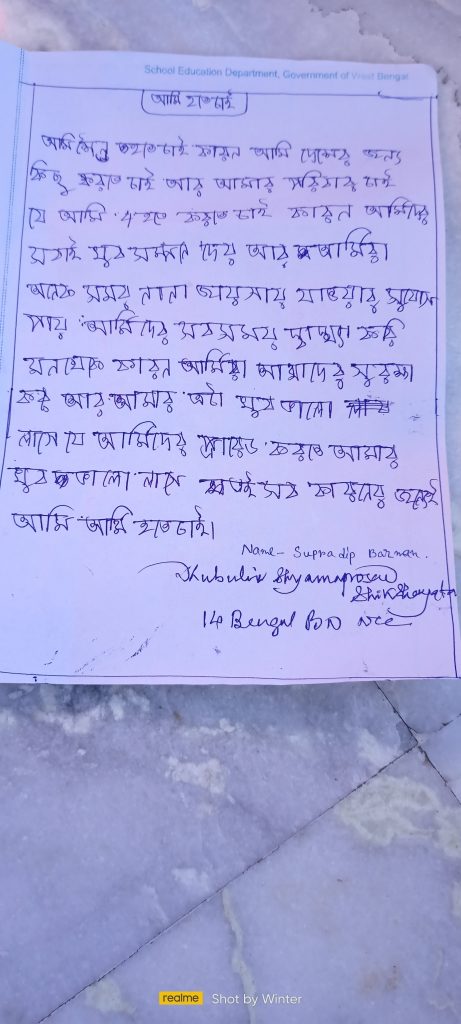 School Education Department, Government of West Bengal
আমি হতে চাই
আমি হতে চাই কারন আমি দেশের জন্য
কিছু করতে চাই আর আমার পরিবার চাই
যে আমি হতে করতে চাই কারন আর্মিদের
সবাই খুব সম্মান দেয় আর আর্মিরা
অনেক সময় নানা জায়গায় যাওয়ার সুযোগ
পায় আর্মিদের সবসময় শ্রদ্ধা করি
মনথেকে কারন আর্মিরা আমাদের সুরক্ষা
করে আর আমার এটা খুব ভালো
লাগে যে আর্মিদের করতে আমার
খুব ভালো লাগে এই সব কারনের জন্যই
আমি আর্মি হতে চাই।
Name- Supradip Barman.
Dhubulia Shyamaprosad
Shikshayatan
14 Bengal BN NCC
realme Shot by Winter